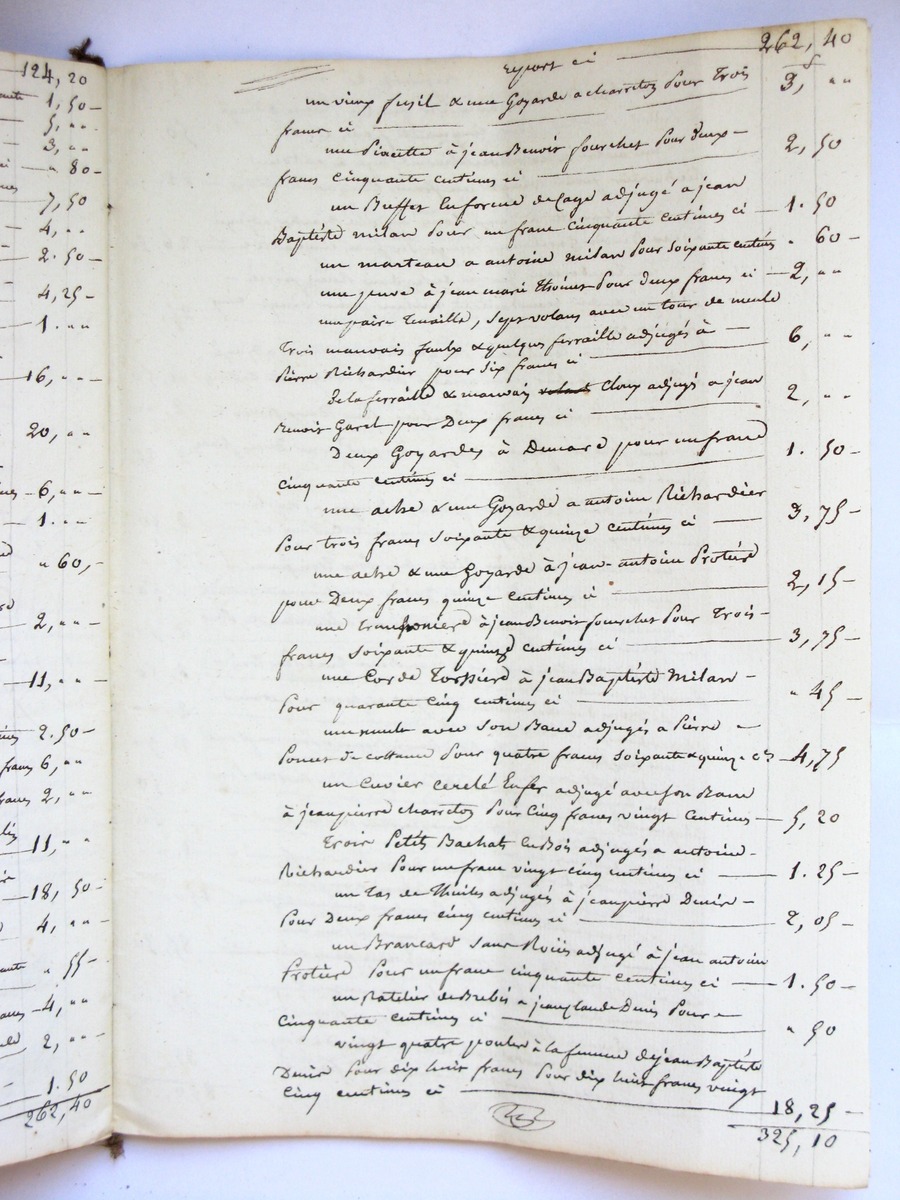 124, 20
1, 50 –
5, " "
3, " "
" 80 –
7, 50
4, " "
2. 50 –
4, 25 –
1. " "
16, " "
20, " "
6, " "
1. " "
" 60, –
2, " "
11, " "
2. 50 –
francs 6, " "
francs 2, " "
11, " "
18, 50 –
4, " "
" 55 –
4, " "
2, " "
1. 50
262, 40
report ci 262, 40
un vieux fusil & une Goyarde a charreton pour Trois
francs ci 3, " "
une Pioctte à jean Benoit fourchet pour deux
francs cinquante centimes ci 2, 50
un Buffet En forme de Cage adjugé a jean
Baptiste milan pour un franc Cinquante Centimes ci 1. 50
un marteau a antoine milan pour soixante centimes " 60 –
une à jean marie pour deux francs ci 2, " "
une paire Tenaille, sept volans avec un tour de meule
Trois mauvais faulx & quelques ferraille adjugés à
Pierre Richardier pour six francs ci 6, " "
De la ferraille & mauvais volant Cloux adjugé a jean
Benoit Garel pour Deux francs ci 2, " "
Deux Goyardes à Demare pour un franc
cinquante centimes ci 1. 50 –
une ache & une Goyarde a antoine Richardier
Pour trois francs soixante & quinze centimes ci 3, 75 –
une ache & une Goyarde à jean-antoine Protière
pour Deux francs quinze centimes ci 2, 15 –
une à jean Benoit fourchet pour Trois
francs soixante & quinze centimes ci 3, 75 –
une Corde à jean Baptiste Milan
Pour quarante Cinq centimes ci " 45 –
une avec son Banc adjugés a Pierre
Poncet de pour quatre francs soixante & quinze c.es 4, 75
un Cuvier cerclé En fer adjugé avec son Banc
à jean pierre charreton pour Cinq francs vingt Centimes 5, 20
Trois Petits Bachats En Bois adjugés a antoine
Richardier pour un franc vingt cinq centimes ci 1. 25 –
un Tas de Thuiles adjugés à jean pierre Denis
pour Deux francs cinq centimes ci 2, 05 –
un Brancard sans Roües adjugé à jean antoine
Protière pour un franc cinquante centimes ci 1. 50 –
un Ratelier de Brebis a jean claude Denis pour
Cinquante centimes ci " 50
vingt quatre poules à la femme de jean Baptiste
Denis pour dix huit francs pour dix huit francs vingt
Cinq centimes ci 18, 25 –
325, 10